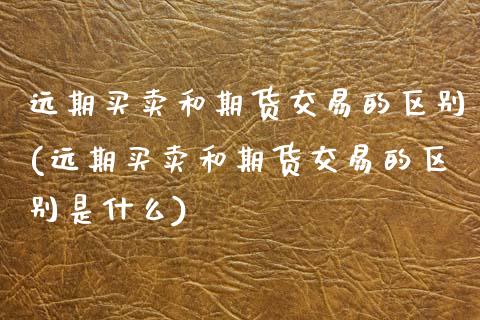 远期买卖和期货交易的区别
(远期买卖和期货交易的区
别是什么)